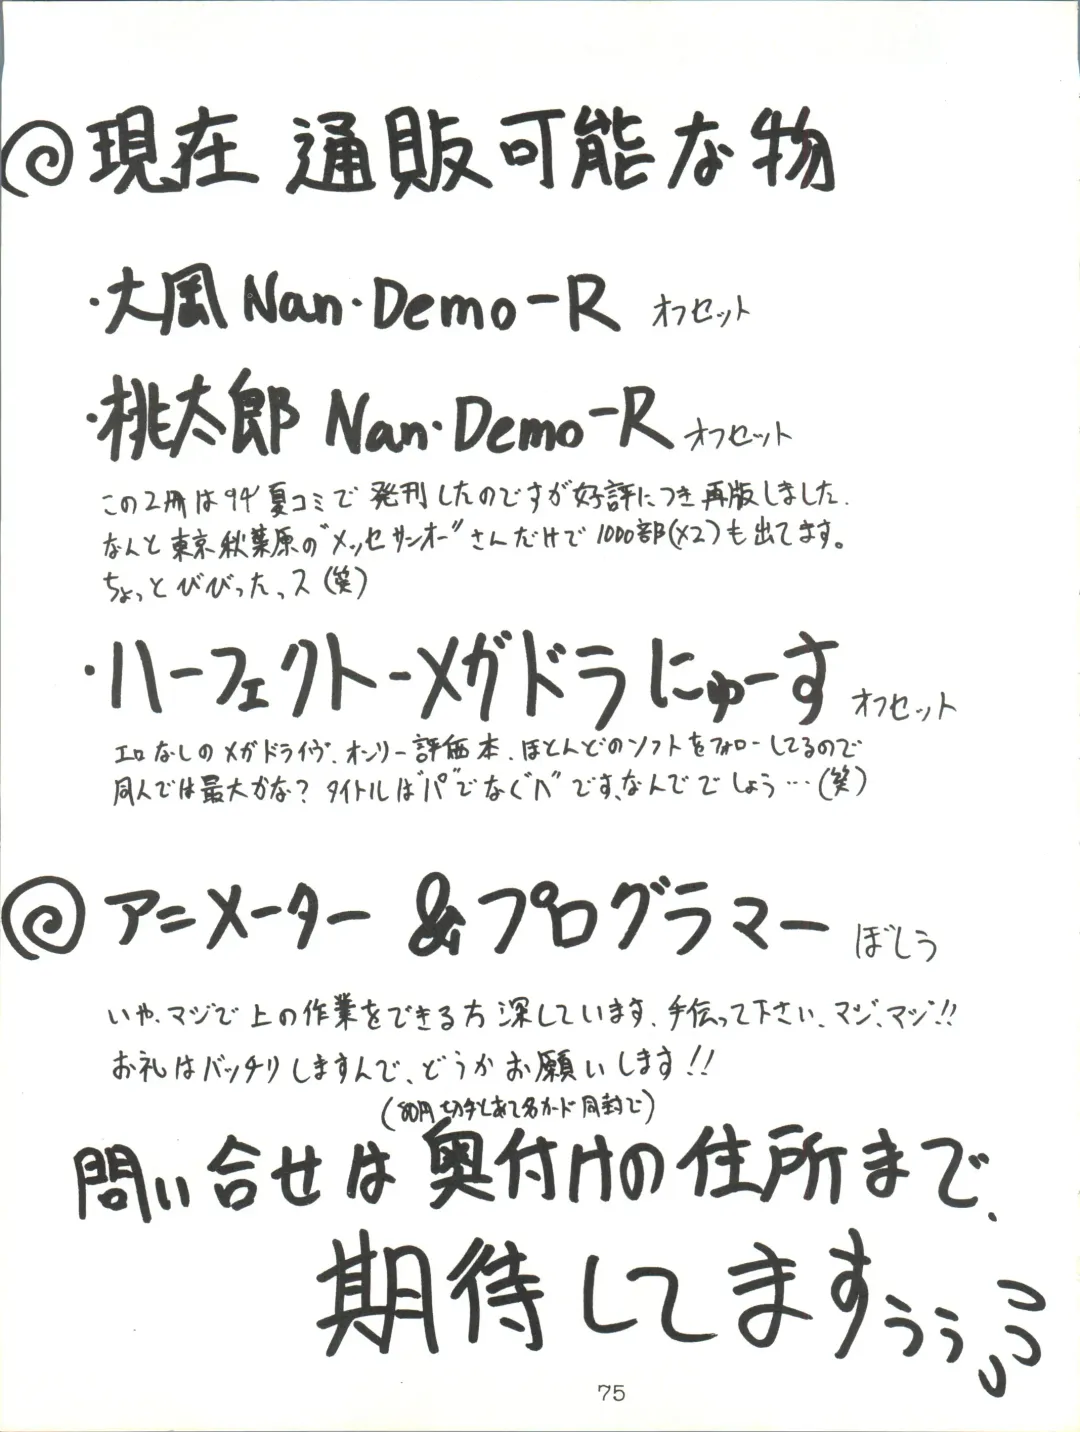 ◎現在 通販可能な物
・大凬 Nan・Demo-R オフセット
・桃太郎 Nan・Demo-R オフセット
この2冊は94'夏コミで発刊したのですが好評につき再版しました.
なんと東京秋葉原の"メッセサンオー"さんだけで1000部(×2)も出てます。
ちょっとびびったっス(笑)
・ハーフェクトーメガドラにゅーす オフセット
エロなしのメガドライヴ、オンリー評価本、ほとんどのソフトをフォローしてるので
同人では最大かな? タイトルは"パ"でなく"ハ"です、なんででしょう…(笑)
◎アニメーター &プログラマー ぼしう
いや、マジで上の作業をできる方深しています、手伝って下さい、マジ、マジ!!
お礼はバッチリしますんで、どうかお願いします!!
(80円切手とあて名カード同封で)
問い合せは奥付けの住所まで、
期待してますぅぅ
75